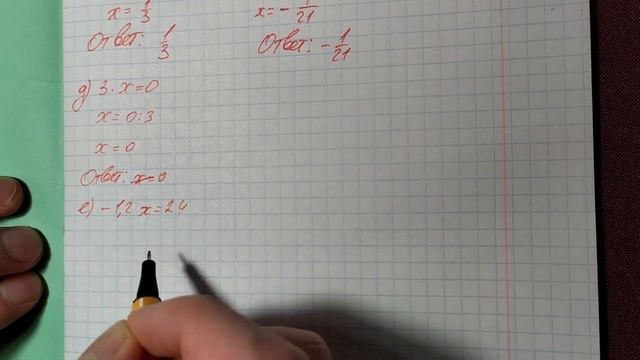 x = 1/3
Ответ: 1/3
x = - 1/21
Ответ: - 1/21
д) 3 · x = 0
x = 0 : 3
x = 0
Ответ: x=0
е) - 1,2 x = 2,4